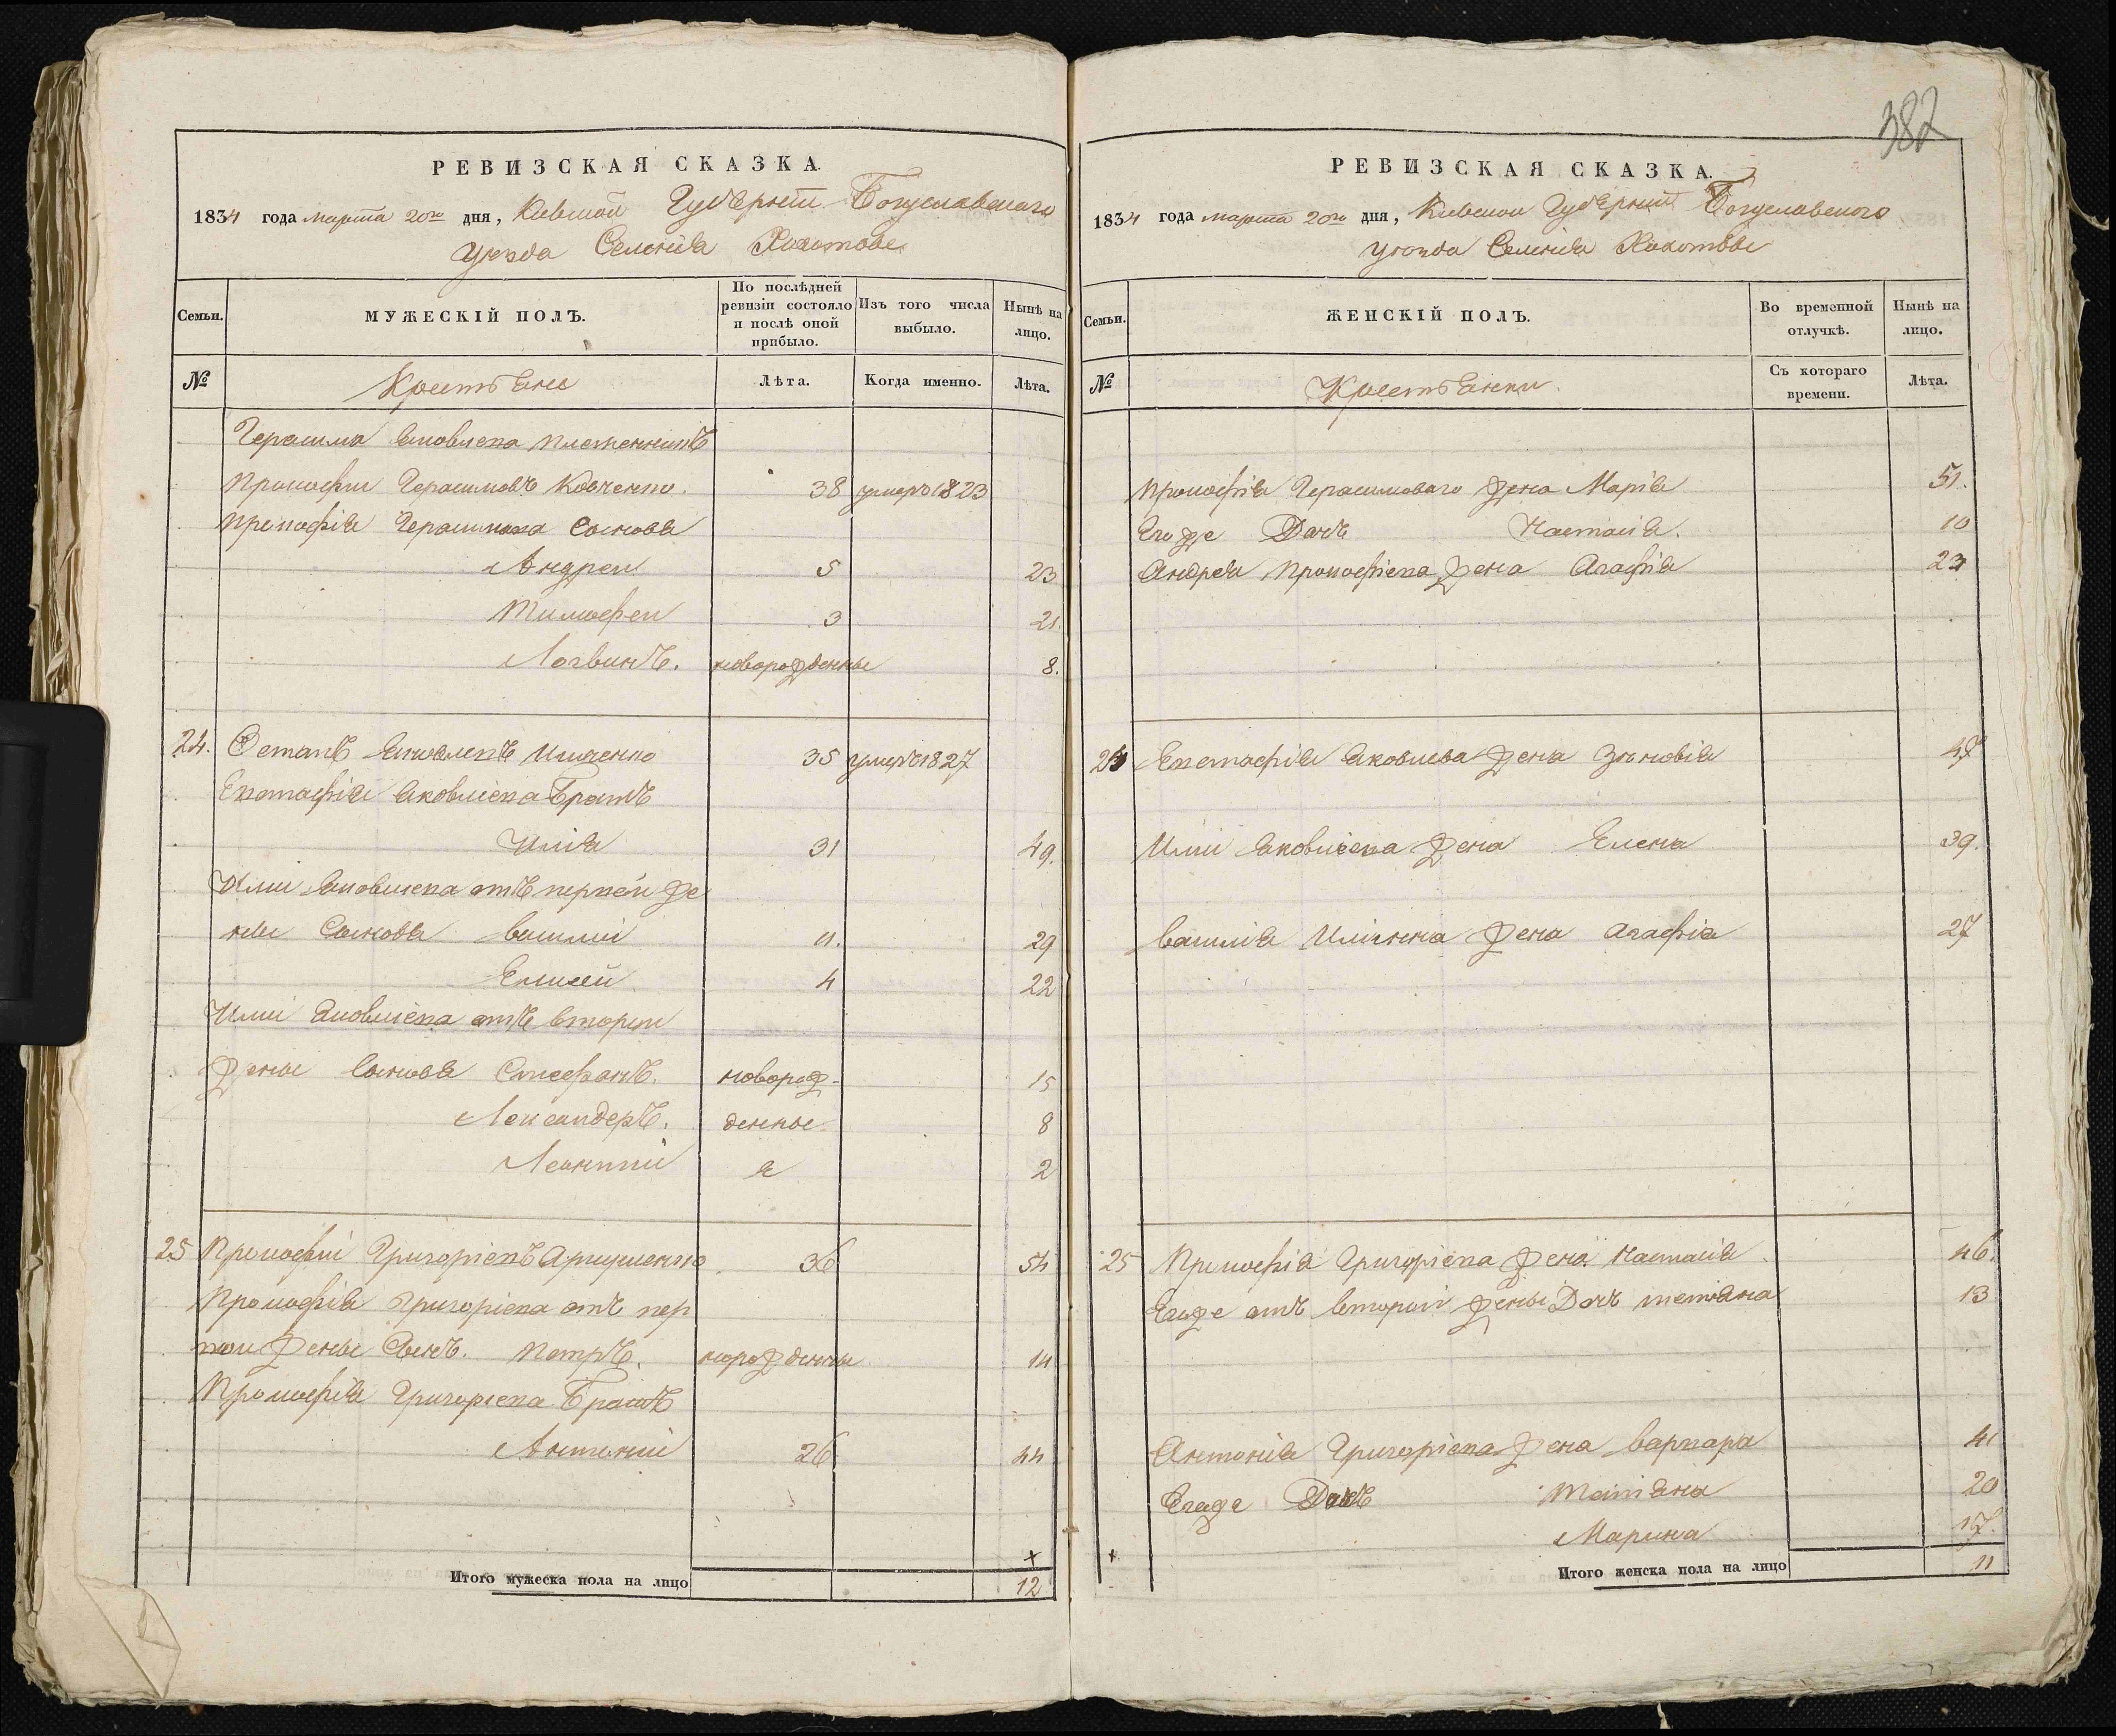 382
РЕВИЗСКАЯ СКАЗКА.
1834 года марта 20го дня, Киевской Губернии Богуславского
уезда Селения Хохотове
Семьи.
МУЖЕСКІЙ ПОЛЪ.
По послѣдней ревизіи состояло и послѣ оной прибыло.
Изъ того числа выбыло.
Нынѣ на лицо.
№
Крестьяне
Лѣта.
Когда именно.
Лѣта.
Герасима Яковлева племенникъ
Прокофии Герасимовъ Ковченко. 38 умеръ 1823
Прокофія Герасимова Сыновя
Андреи 5 23
Тимофеи 3 21.
Логвинъ. новорожденные 8.
24. Остапъ Яковлевъ 35 умеръ 1827
Яковліева Братъ
Илія 31 49.
Илии Яковліева отъ первой же
ны Сыновя Василий 11. 29
Елисей 4 22
Илиі Яковліева отъ вторыи
жены Сыновя Стефанъ. новорож- 15
Лександеръ. денные 8
Леонтий 2
25 Прокофиі Григоріевъ 36 54
Прокофія Григоріева отъ пер
вои жены Сынъ. Петръ. норожденны 14
Прокофія Григоріева Братъ
Антоний 26 44
+
Итого мужеска пола на лицо 12
РЕВИЗСКАЯ СКАЗКА.
1834 года марта 20го дня, Киевскои Губернии Богуславского
уезда Селения Хохотове
Семьи.
ЖЕНСКІЙ ПОЛЪ.
Во временной отлучкѣ.
Нынѣ на лицо.
№
Крестьянки.
Съ котораго времени.
Лѣта.
Прокофія Герасимоваго жена Марія 51.
Егоже Дочъ Настасія. 10
Андрея Прокофіева жена Агафія 23
24 Яковлева жена Зѣновія 47
Илиі Яковліева жена Елена 39.
Василія Иліина жена Агафія 27
25 Прокофія Григоріева жена Настасія 46.
Егоже отъ второй жены Дочъ тетяна 13
Антонія Григоріева жена варвара 41
Егоже Дочъ Татіяна 20
Марина 17.
+
Итого женска пола на лицо 11